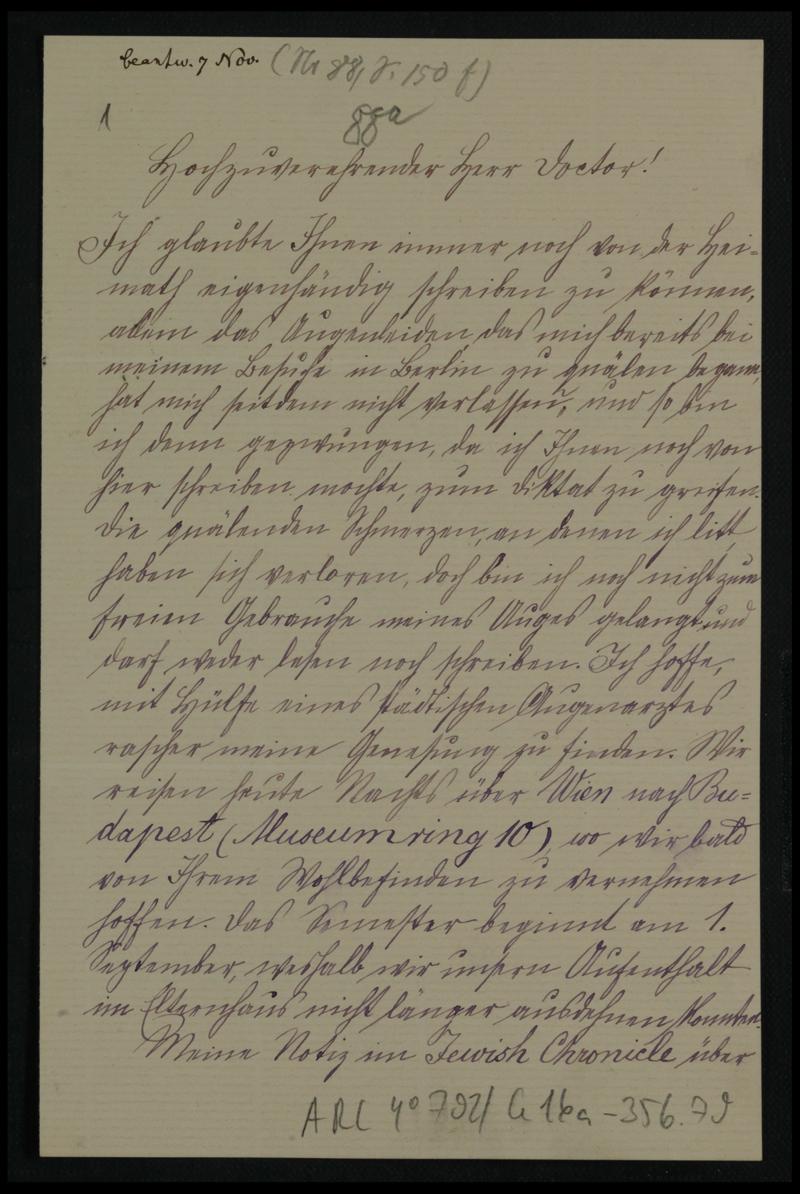 beantw. 7 Nov. (Nr 88, S. 150 f)
1
88a
Hochzuverehrender Herr Doctor!
Ich glaubte Ihnen immer noch von der Hei-
math eigenhändig schreiben zu können,
allein das Augenleiden, das mich bereits bei
meinem Besuche in Berlin zu quälen begann,
hat mich seitdem nicht verlassen, und so bin
ich denn gezwungen, da ich Ihnen noch von
hier schreiben mochte, zum Diktat zu greifen.
Die quälenden Schmerzen, an denen ich litt,
haben sich verloren, doch bin ich noch nicht zum
freien Gebrauche meines Auges gelangt und
darf weder lesen noch schreiben. Ich hoffe,
mit Hülfe eines städtischen Augenarztes
rascher meine Genesung zu finden. Wir
reisen heute Nachts über Wien nach Bu-
dapest (Museumring 10), wo wir bald
von Ihrem Wohlbefinden zu vernehmen
hoffen. Das Semester beginnt am 1.
September, weshalb wir unsern Aufenthalt
im Elternhaus nicht länger ausdehnen konnten.
Meine Notiz im Jewish Chronicle über
ARC 4° 792/ G 16a-356.79